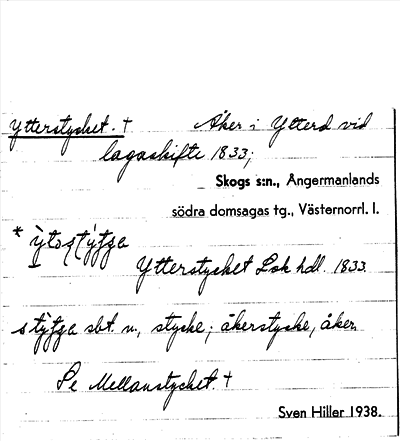 Ytterstycket. † Åker i Ytterd vid
lagaskifte 1833;
Skogs s:n., Ångermanlands
södra domsagas tg., Västernorrl. l.
*
Ytterstycket Lsk hdl. 1833.
sbt. n., stycke; åkerstycke, åker.
Se Mellanstycket. †
Sven Hiller 1938.